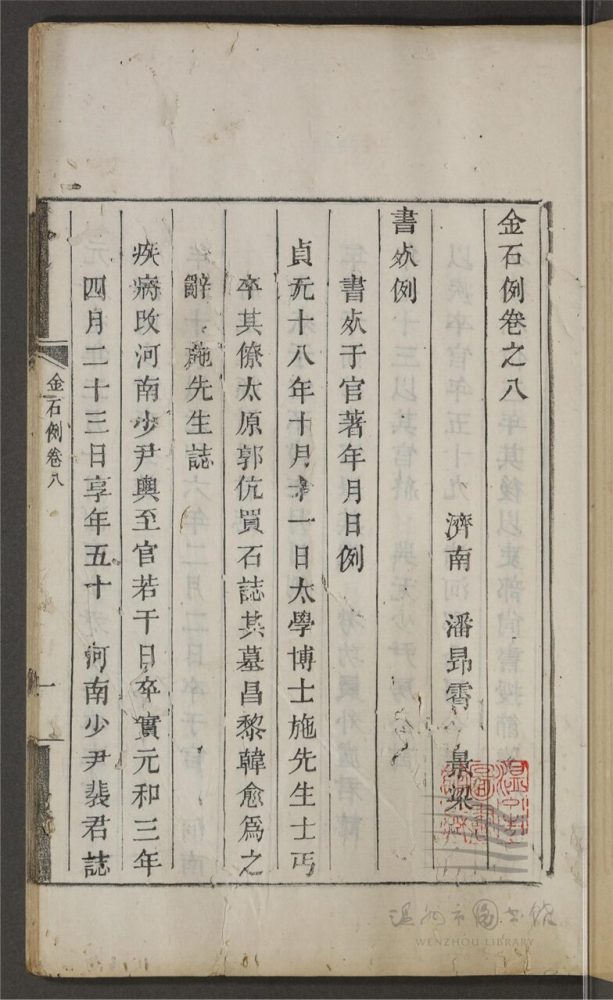 金石例卷之八
濟南 潘昂霄 景梁
書歿例
書歿于官著年月日例
貞元十八年十月十一日太學博士施先生士丐
卒其僚太原郭伉買石誌其墓昌黎韓愈爲之
辭 施先生誌
疾病改河南少尹輿至官若干日卒實元和三年
四月二十三日享年五十 河南少尹裴君誌
金石例卷八
一
温州市圖書館
WENZHOU LIBRARY